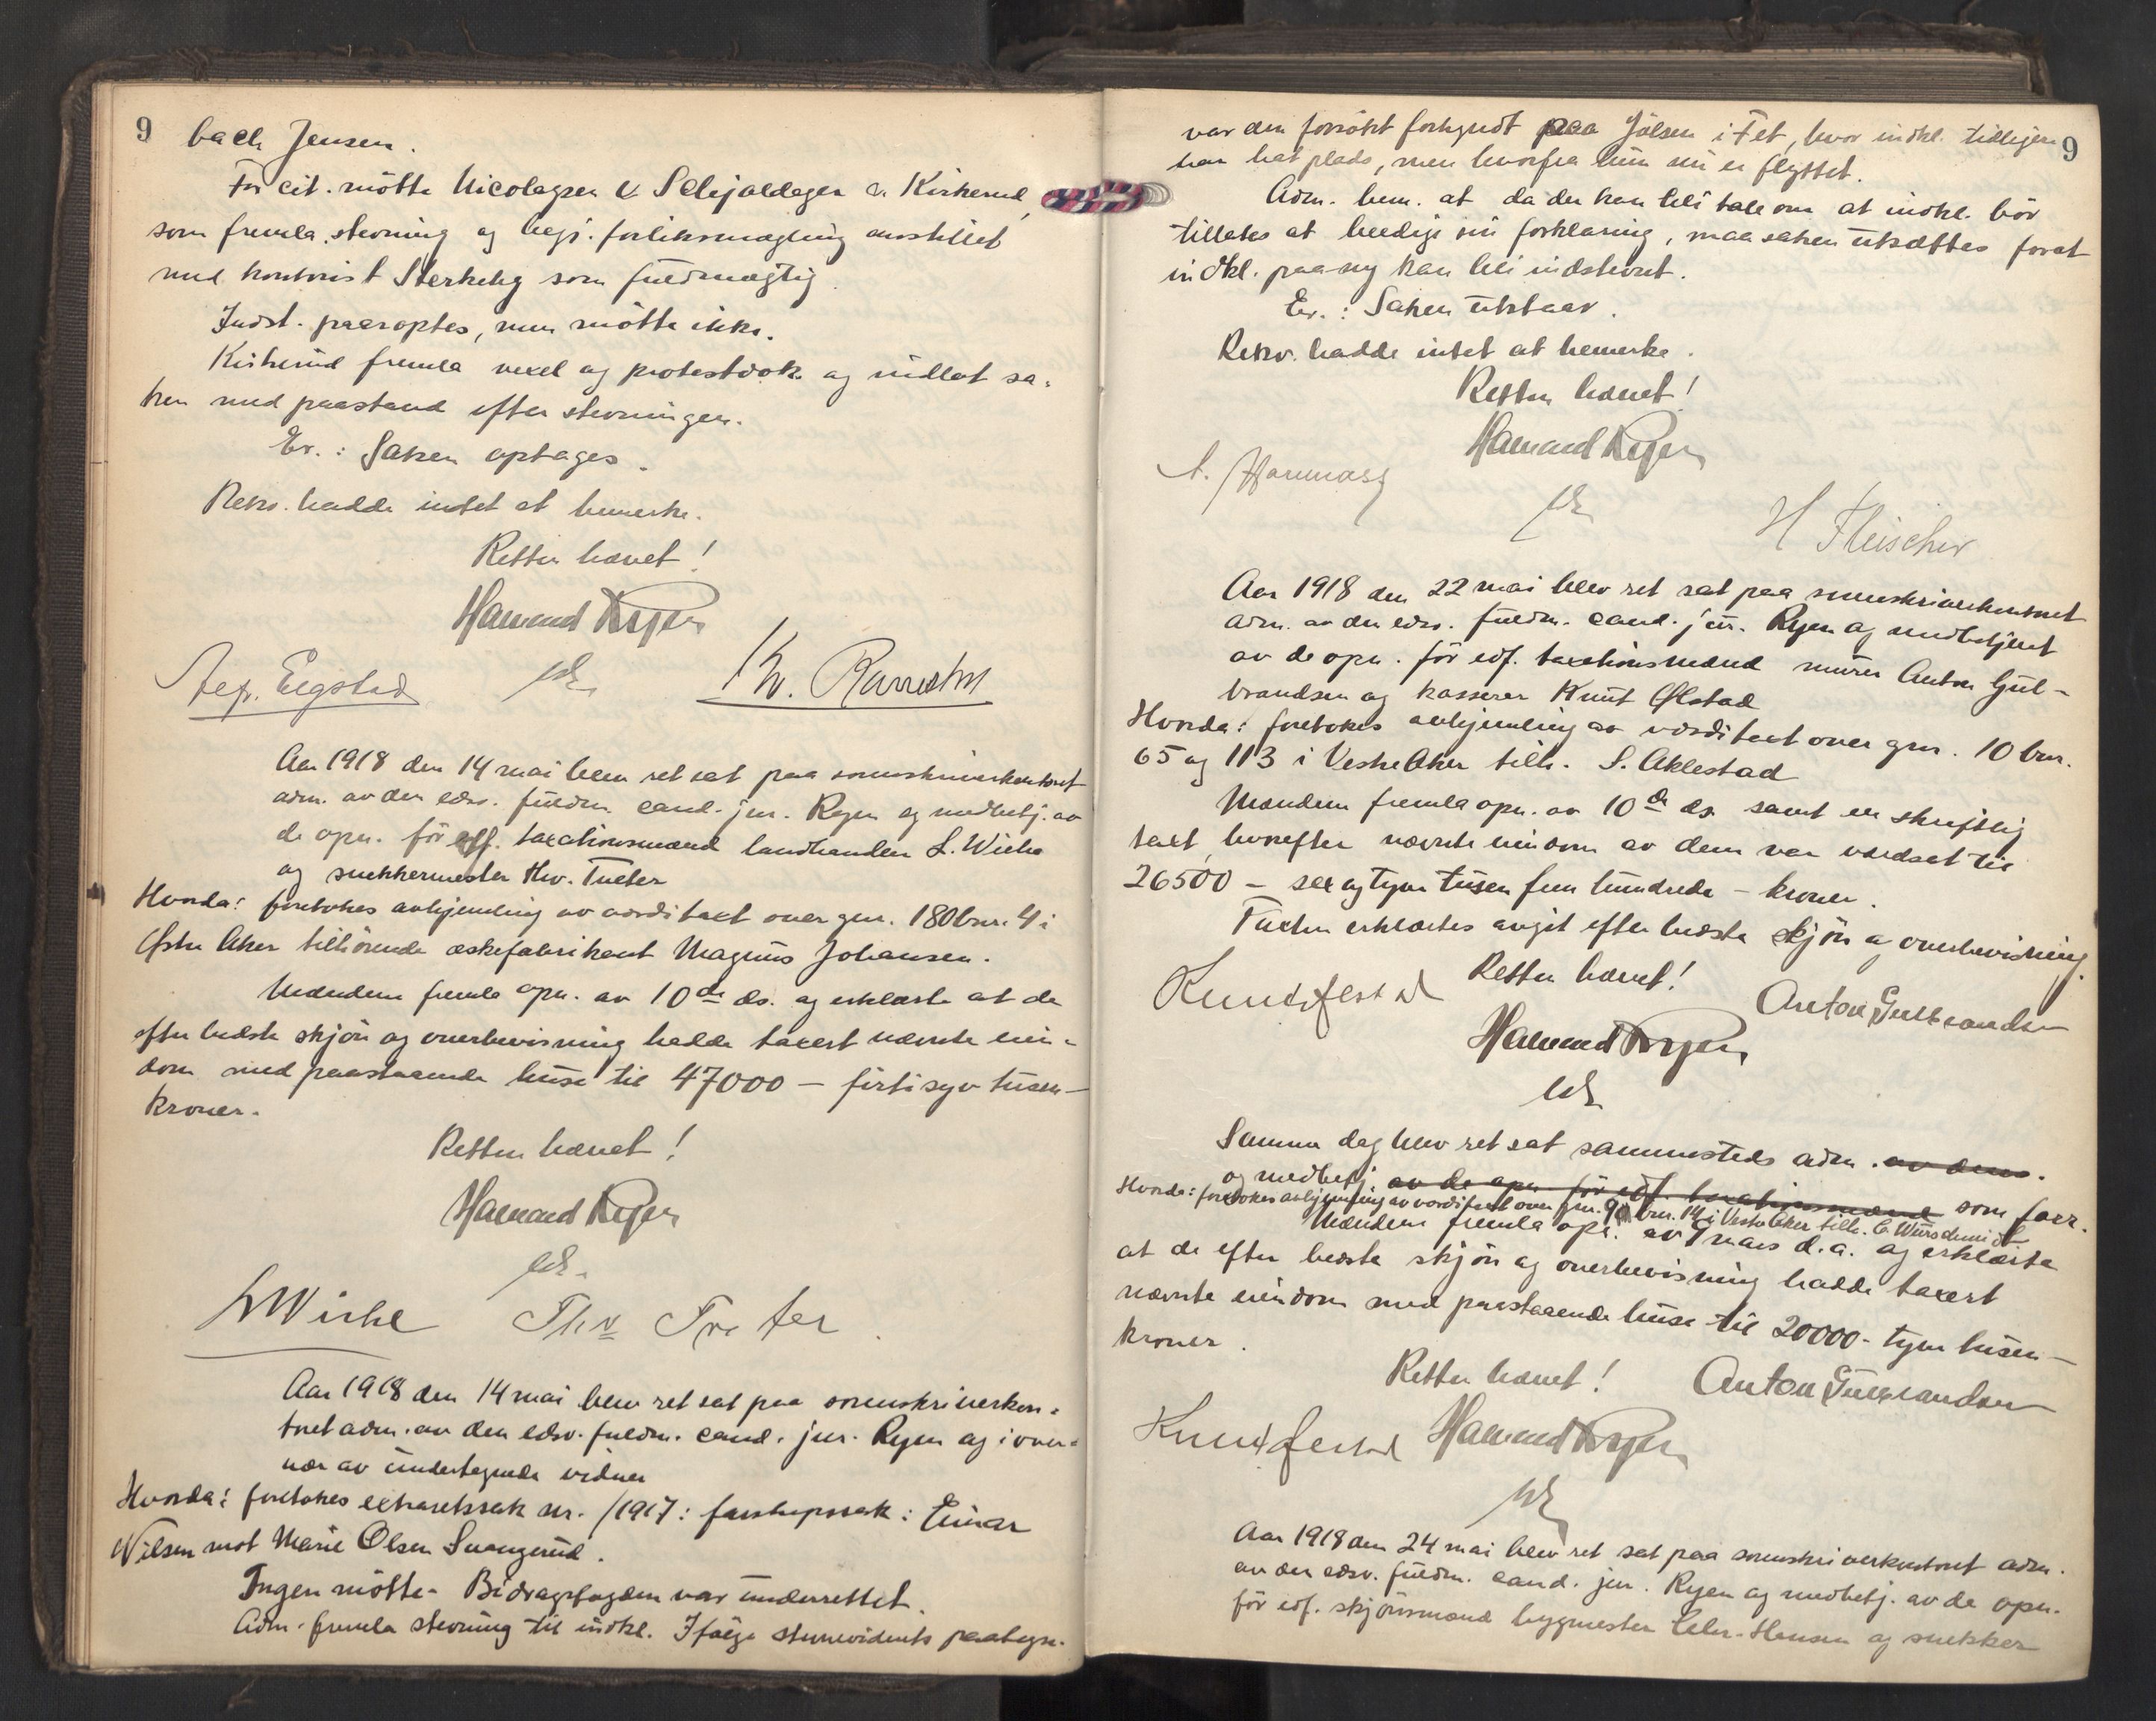 9
bach Jensen.
For cit. mötte Nicolaysen & Schjoldager v. Kirkerud,
som fremla stevning og begj. forliksmægling anstillet
med kontorist Sterkeby som fuldmægtig.
Indst. paaroptes, men mötte ikke.
Kirkerud fremla vexel og protestdok. og indlot sa-
ken med paastand efter stevningen.
Er.: Saken optages.
Rekv. hadde intet at bemerke.
Retten hævet!
Halvard Ryen
Aar 1918 den 14 mai blev ret sat paa sorenskriverkontoret
adm. av den edsv. fuldm. cand. jur. Ryen og medbetj. av
de opn. för edf. taxationsmænd landhandler L. Wiche
og snekkermester Thv. Tveter
Hvorda: foretokes avhjemling av værditaxt over gnr. 180 bnr. 4 i
Östre Aker tilhörende æskefabrikant Magnus Johansen.
Mændene fremla opn. av 10de ds. og erklærte at de
efter bedste skjön og overbevisning hadde taxert nævnte eien-
dom med paastaaende huse til 47000 — förtisyv tusen —
kroner.
Retten hævet!
Halvard Ryen
L Wiche Thv Tveter
Aar 1918 den 14 mai blev ret sat paa sorenskriverkon-
toret adm. av den edsv. fuldm. cand. jur. Ryen og i over-
vær av undertegnede vidner
Hvorda: foretokes extraretssak nr. /1917: farskapssak: Einar
Nilsen mot Marie Olsen Svangerud.
Ingen mötte. Bidragsfogden var underrettet.
Adm. fremla stevning til indkl. Ifölge stevnevidnets paategn.
9
var den forsökt forkyndt paa Jölsen i Fet, hvor indkl. tidligere
har hat plads, men hvorfra hun nu er flyttet.
Adm. bem. at da der kan bli tale om at indkl. bör
tillates at beedige sin forklaring, maa saken utsættes forat
indkl. paany kan bli indstevnt.
Er.: Saken utstaar.
Rekv. hadde intet at bemerke.
Retten hævet!
Halvard Ryen
H Fleischer
Aar 1918 den 22 mai blev ret sat paa sorenskriverkontoret
adm. av den edsv. fuldm. cand. jur. Ryen og medbetjent
av de opn. för edf. taxationsmænd murer Anton Gul-
brandsen og kasserer Knut Ølstad
Hvorda: foretokes avhjemling av værditaxt over gnr. 10 bnr.
65 og 113 i Vestre Aker tilh. S. Aklestad
Mændene fremla opn. av 10de ds. samt en skriftlig
taxt, hvorefter nævnte eiendom av dem var værdsat til
26500 — sex og tyve tusen fem hundrede — kroner.
Taxten erklærtes avgit efter bedste skjön og overbevisning.
Retten hævet!
Knut Ølstad Anton Gulbrandsen
Halvard Ryen
Samme dag blev ret sat sammesteds adm. av dens.
og medbetj. av de opn. för edf. taxationsmænd som förr.
Hvorda: foretokes avhjemling av værditaxt over gnr. 90 bnr. 14 i Vestre Aker tilh.
Mændene fremla opn. av 7 mars d.a. og erklærte
at de efter bedste skjön og overbevisning hadde taxert
nævnte eiendom med paastaaende huse til 20000 - tyve tusen —
kroner.
Retten hævet! Anton Gulbrandsen
Knut Ølstad Halvard Ryen
Aar 1918 den 24 mai blev ret sat paa sorenskriverkontoret adm.
av den edsv. fuldm. cand. jur. Ryen og medbetj. av de opn.
för edf. skjönsmænd bygmester Hansen og snekker